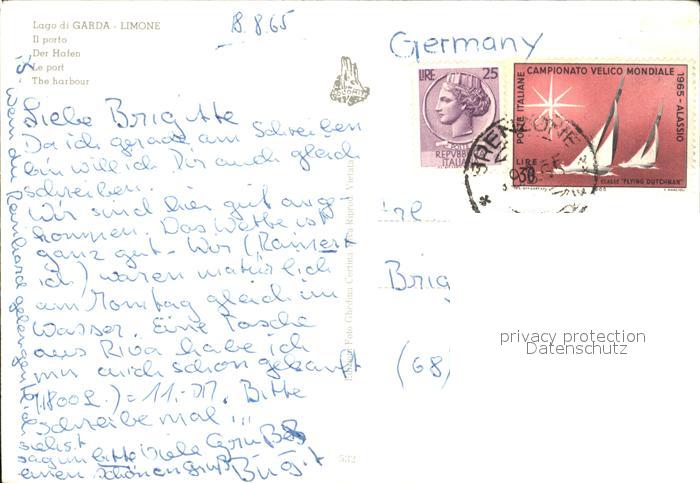 Lago di GARDA - LIMONE
Il porto
Der Hafen
Le port
The harbour
8.8.65
Germany
LIRE 25
REPVBBLICA
ITALIANA
POSTE ITALIANE
CAMPIONATO VELICO MONDIALE
1965 - ALASSIO
LIRE
30
CLASSE "FLYING DUTCHMAN"
Liebe Brigitte
Da ich gerade am schreiben
bin will ich Dir auch gleich
schreiben.
Wir sind hier gut ange-
kommen. Das Wetter ist
ganz gut. Wir (
ich) waren natürlich
am Montag gleich im
Wasser. Eine Tasche
aus Riva habe ich
mir auch schon gekauft
(1800 L.) = 11,- DM. Bitte
schreibe mal !!!
viele Grüße
Birgit
wenn du Reinhard
siehst
sag ihm bitte
einen schönen Gruß
Brig
(68)
privacy protection
Datenschutz
532